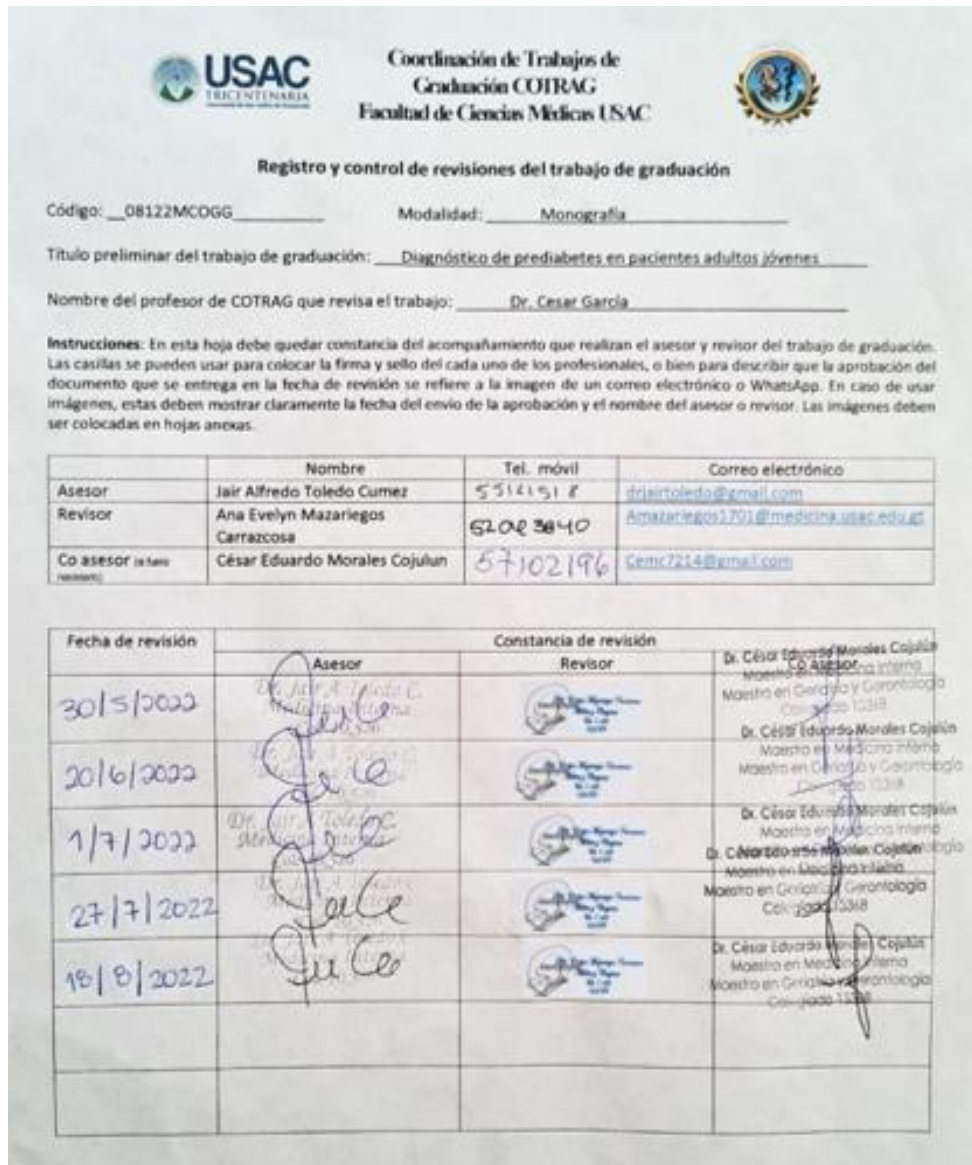 USAC
TRICENTENARIA
Coordinación de Trabajos de
Graduación COTRAG
Facultad de Ciencias Médicas USAC
Registro y control de revisiones del trabajo de graduación
Código: __08122MCOGG__________ Modalidad: ______Monografía__________________
Título preliminar del trabajo de graduación: ___Diagnóstico de prediabetes en pacientes adultos jóvenes______
Nombre del profesor de COTRAG que revisa el trabajo: ______Dr. Cesar García______________________
Instrucciones: En esta hoja debe quedar constancia del acompañamiento que realizan el asesor y revisor del trabajo de graduación.
Las casillas se pueden usar para colocar la firma y sello del cada uno de los profesionales, o bien para describir que la aprobación del
documento que se entrega en la fecha de revisión se refiere a la imagen de un correo electrónico o WhatsApp. En caso de usar
imágenes, estas deben mostrar claramente la fecha del envío de la aprobación y el nombre del asesor o revisor. Las imágenes deben
ser colocadas en hojas anexas.
Nombre Tel. móvil Correo electrónico
Asesor Jair Alfredo Toledo Cumez drjairtoledo@gmail.com
Revisor Ana Evelyn Mazariegos Amazariegos1701@medicina.usac.edu.gt
Carrazcosa
Co asesor César Eduardo Morales Cojulun 57102196 Cemc7214@gmail.com
Fecha de revisión Constancia de revisión
Asesor Revisor Co Asesor
Dr. César Eduardo Morales Cojulún
Maestro en Medicina Interna
Maestro en Geriatría y Gerontología
30/5/2022 Dr. Jair A. Toledo C.
Medicina Interna
Dr. César Eduardo Morales Cojulún
Maestro en Medicina Interna
Maestro en Geriatría y Gerontología
20/6/2022
Dr. César Eduardo Morales Cojulún
Maestro en Medicina Interna
1/7/2022 Dr. Jair A. Toledo C.
Medicina Interna
Dr. César Eduardo Morales Cojulún
Maestro en Medicina Interna
Maestro en Geriatría y Gerontología
Colegiado 13368
27/7/2022
Dr. César Eduardo Morales Cojulún
Maestro en Medicina Interna
Maestro en Geriatría y Gerontología
Colegiado 13368
18/8/2022